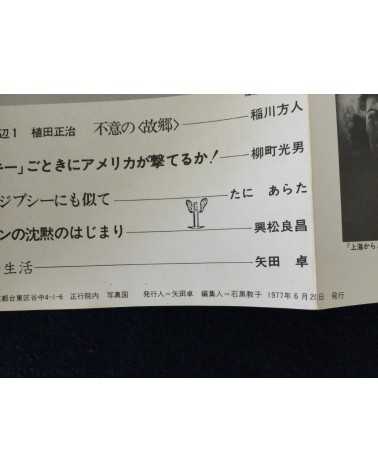 辺1 植田正治 不意の〈故郷〉——稲川方人
キー」ごときにアメリカが撃てるか!——柳町光男
ジプシーにも似て——たに あらた
ンの沈黙のはじまり——興松良昌
生活——矢田 卓
都台東区谷中4-1-6 正行院内 写真園 発行人=矢田卓 編集人=石黒敦子 1977年6月20日 発行
「上海から